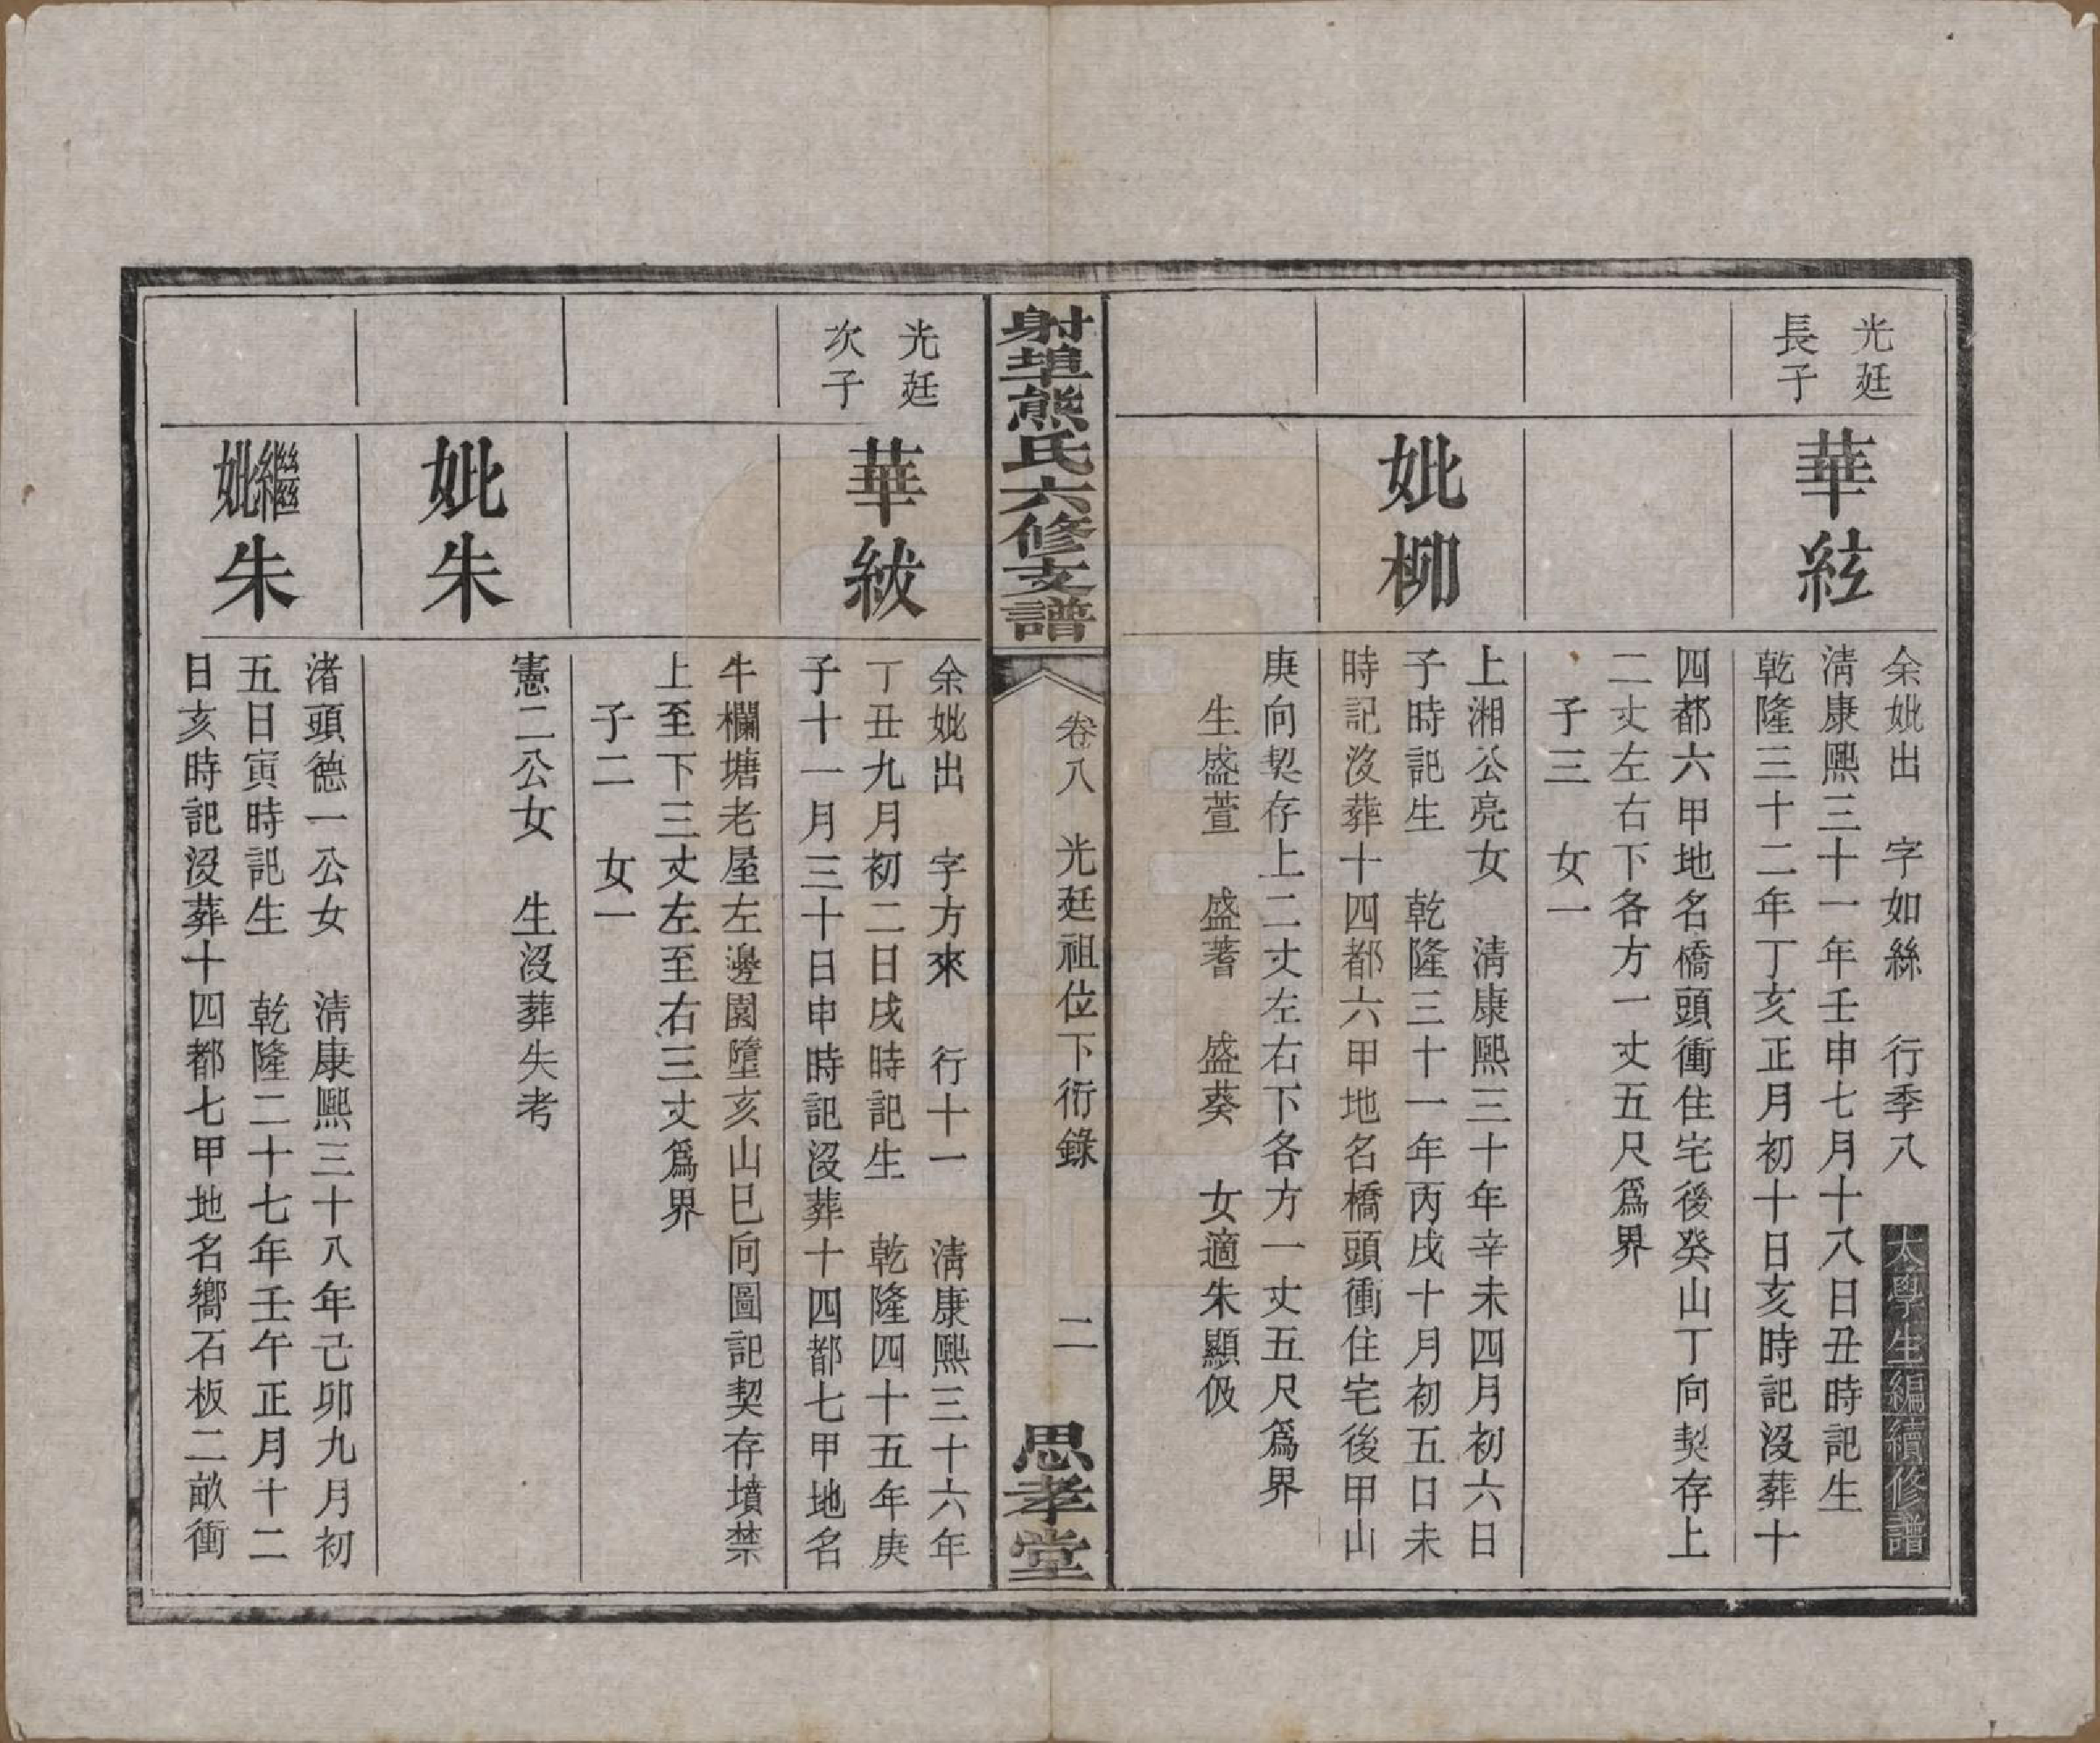 光廷
長子
華紘
余妣出　字如絲　行季八　太學生編續修譜
淸康熙三十一年壬申七月十八日丑時記生
乾隆三十二年丁亥正月初十日亥時記沒葬十
四都六甲地名橋頭衝住宅後癸山丁向契存上
二丈左右下各方一丈五尺爲界
子三　女一
妣柳
上湘公亮女　淸康熙三十年辛未四月初六日
子時記生　乾隆三十一年丙戌十月初五日未
時記沒葬十四都六甲地名橋頭衝住宅後甲山
庚向契存上二丈左右下各方一丈五尺爲界
生盛萱　盛蓍　盛葵　女適朱顯伋
射埠熊氏六修支譜
卷八　光廷祖位下衍錄　二
思孝堂
光廷
次子
華紱
余妣出　字方來　行十一　淸康熙三十六年
丁丑九月初二日戌時記生　乾隆四十五年庚
子十一月三十日申時記沒葬十四都七甲地名
牛欄塘老屋左邊園墮亥山巳向圖記契存墳禁
上至下三丈左至右三丈爲界
子二　女一
妣朱
憲二公女　生沒葬失考
繼妣朱
渚頭德一公女　淸康熙三十八年己卯九月初
五日寅時記生　乾隆二十七年壬午正月十二
日亥時記沒葬十四都七甲地名嚮石板二畝衝